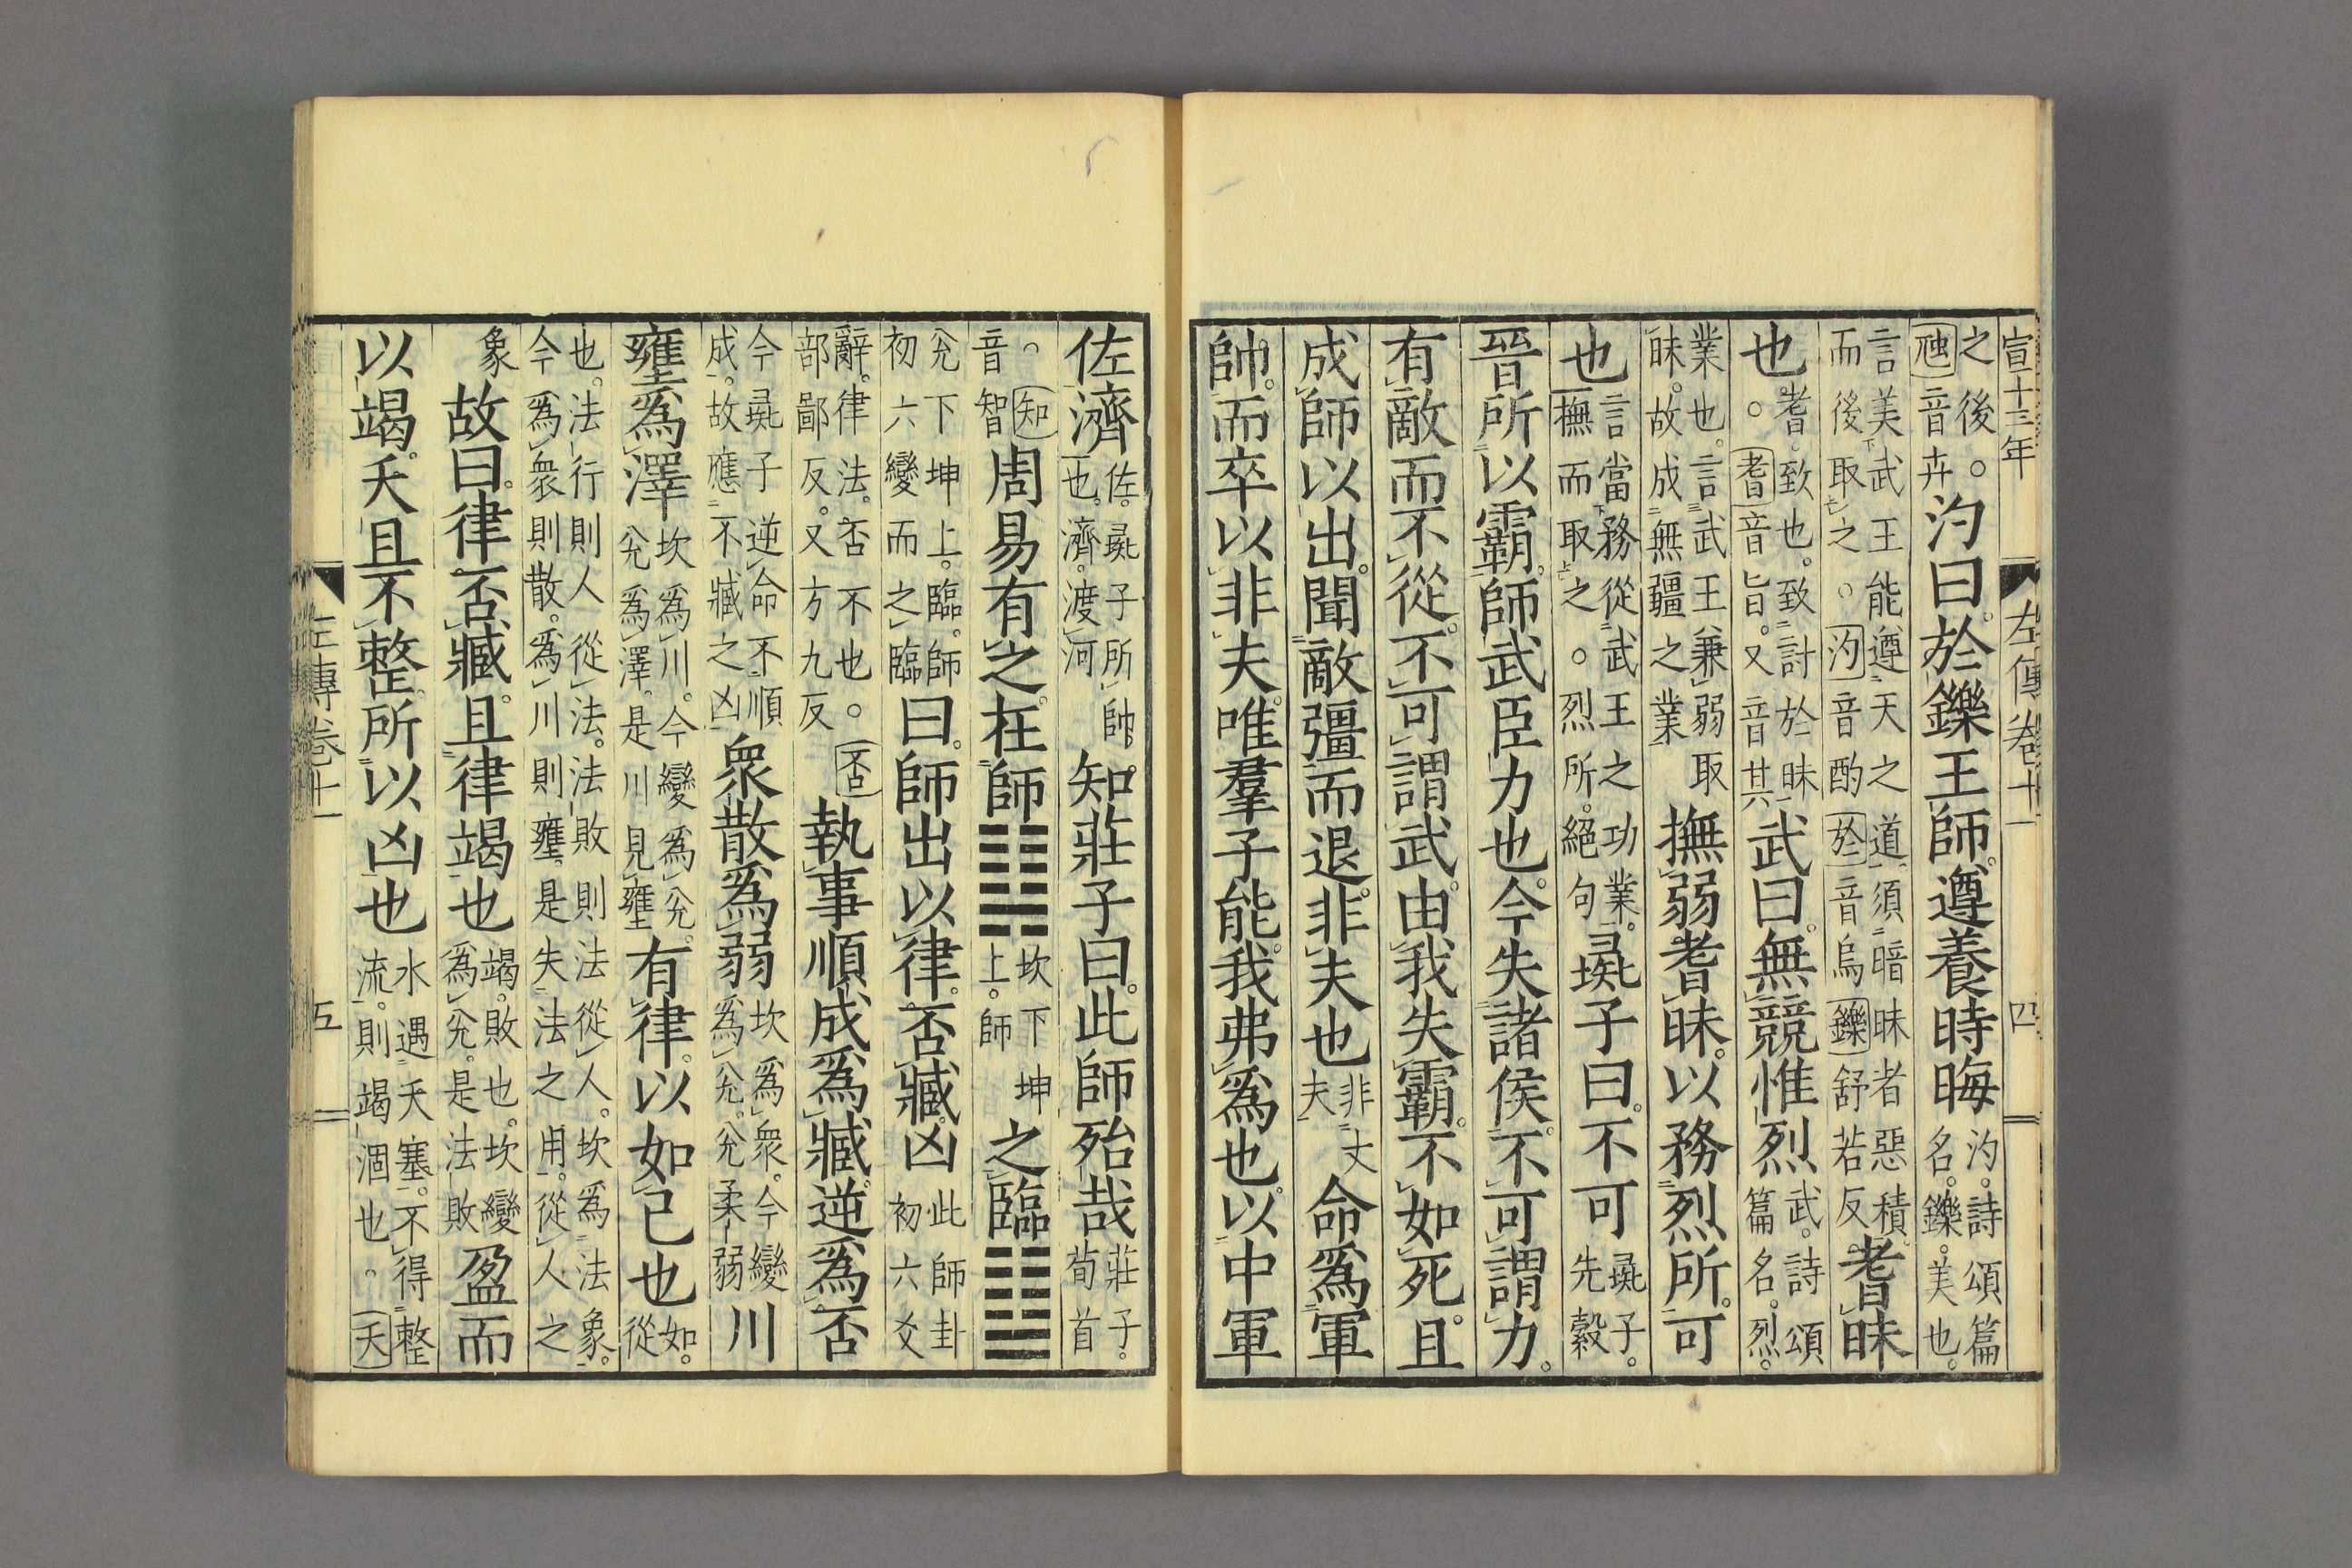 宣十三年
左傳卷十一
四
之後。
虺音卉
汋曰。於鑠王師。遵養時晦
汋。詩頌篇
名。鑠。美也。
言美武王能遵天之道。須暗昧者惡積。
而後取之。汋音酌於音烏鑠舒若反
耆昧
也
耆。致也。致討於昧
。耆音旨。又音其
武曰。無競惟烈
武。詩頌
篇名。烈。
業也。言武王兼弱取
昧。故成無疆之業
撫弱耆昧。以務烈所。可
也
言當務從武王之功業。
撫而取之。烈所。絕句
彘子曰。不可
彘子。
先縠
晉所以霸。師武臣力也。今失諸侯。不可謂力。
有敵而不從。不可謂武。由我失霸。不如死。且
成師以出。聞敵彊而退。非夫也
非丈
夫
命爲軍
帥。而卒以非夫。唯羣子能。我弗爲也。以中軍
佐濟
佐。彘子所帥
也。濟。渡河
知莊子曰。此師殆哉
莊子。
荀首
。知
音智
周易有之。在師䷆
坎下坤
上。師
之臨䷒
兌下坤上。臨。師
初六變而之臨
曰。師出以律。否臧凶
此師卦
初六爻
辭。律法。否不也。否
部鄙反。又方九反
執事順成爲臧。逆爲否
今彘子逆命不順
成。故應不臧之凶
衆散爲弱
坎爲衆。今變
爲兌。兌柔弱
川
壅爲澤
坎爲川。今變爲兌。
兌爲澤。是川見壅
有律。以如己也
如。
從
也。法行則人從法。法敗則法從人。坎爲法象。
今爲衆則散。爲川則壅。是失法之用。從人之
象
故曰。律。否臧。且律竭也
竭。敗也。坎變
爲兌。是法敗
盈而
以竭。夭且不整。所以凶也
水遇夭塞。不得整
流。則竭涸也。夭
左傳卷十一
五